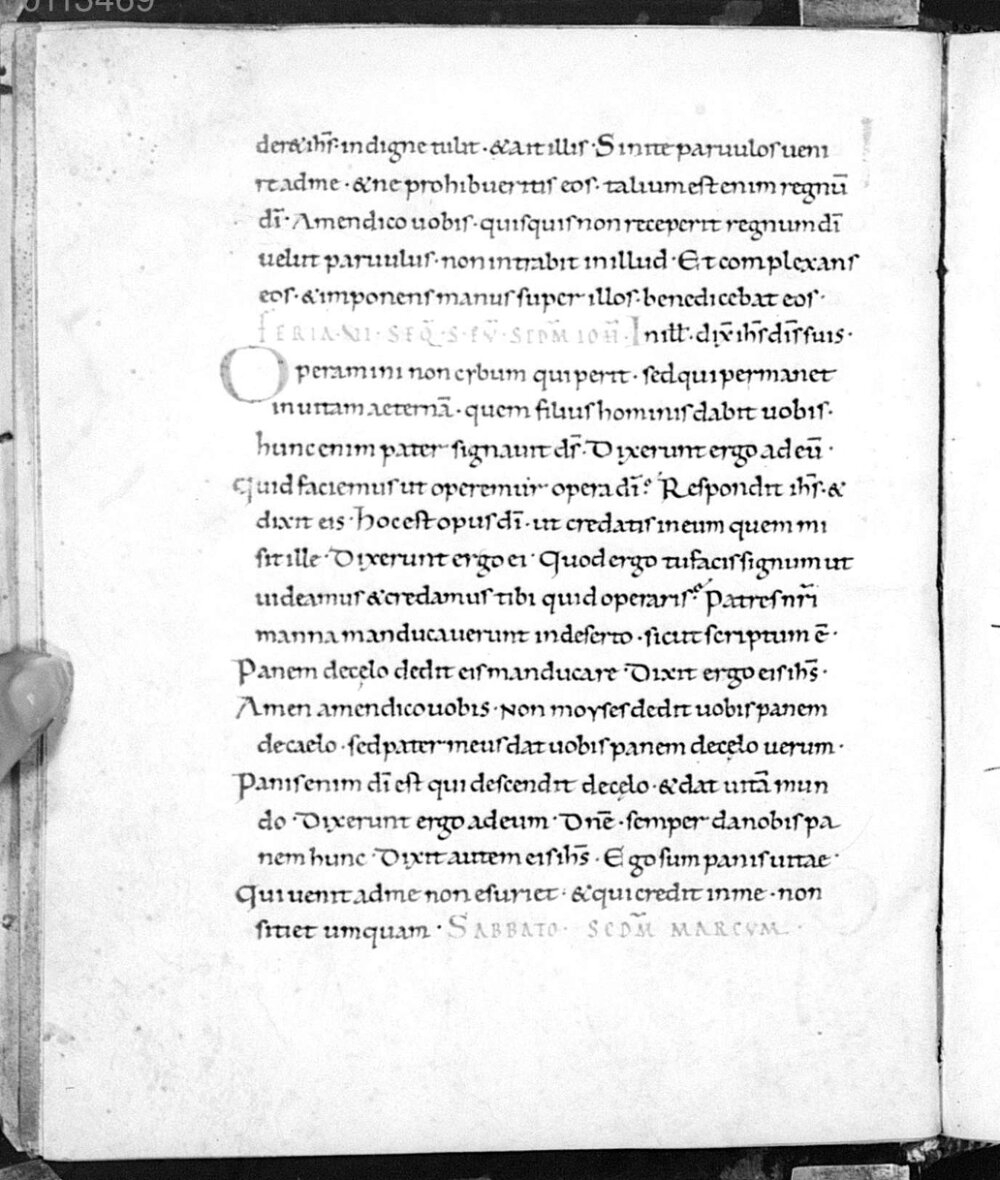 0113469
der& ih̅s· indigne tulit · & ait illis · Sinite paruulos ueni
re ad me · & ne prohibueritis eos · talium est enim regnu̅
di̅ · Amen dico uobis · quisquis non receperit regnum di̅
uelut paruulus · non intrabit in illud · Et complexans
eos · & imponens manus super illos · benedicebat eos ·
SEQ̅ · S · EV̅ · SCDM̅ IOH̅ · In ill̅ · dix̅ ih̅s dis̅ suis ·
Operamini non cybum qui perit · sed qui permanet
in uitam aeterna̅ · quem filius hominis dabit uobis ·
hunc enim pater signauit ds̅ · Dixerunt ergo ad eu̅ ·
Quid faciemus ut operemur opera di̅? Respondit ih̅s · &
dixit eis · hoc est opus di̅ · ut credatis in eum quem mi
sit ille · Dixerunt ergo ei · Quod ergo tu facis signum ut
uideamus & credamus tibi quid operaris? Patres nr̅i
manna manducauerunt in deserto · sicut scriptum e̅ ·
Panem de cęlo dedit eis manducare · Dixit ergo eis ih̅s ·
Amen amen dico uobis · Non moyses dedit uobis panem
de caelo · sed pater meus dat uobis panem de cęlo uerum ·
Panis enim di̅ est qui descendit de cęlo · & dat uita̅ mun
do · Dixerunt ergo ad eum · Dne̅ · semper da nobis pa
nem hunc · Dixit autem eis ih̅s · Ego sum panis uitae ·
Qui uenit ad me non esuriet · & qui credit in me · non
sitiet umquam · SABBATO · SCDM̅ MARCVM ·